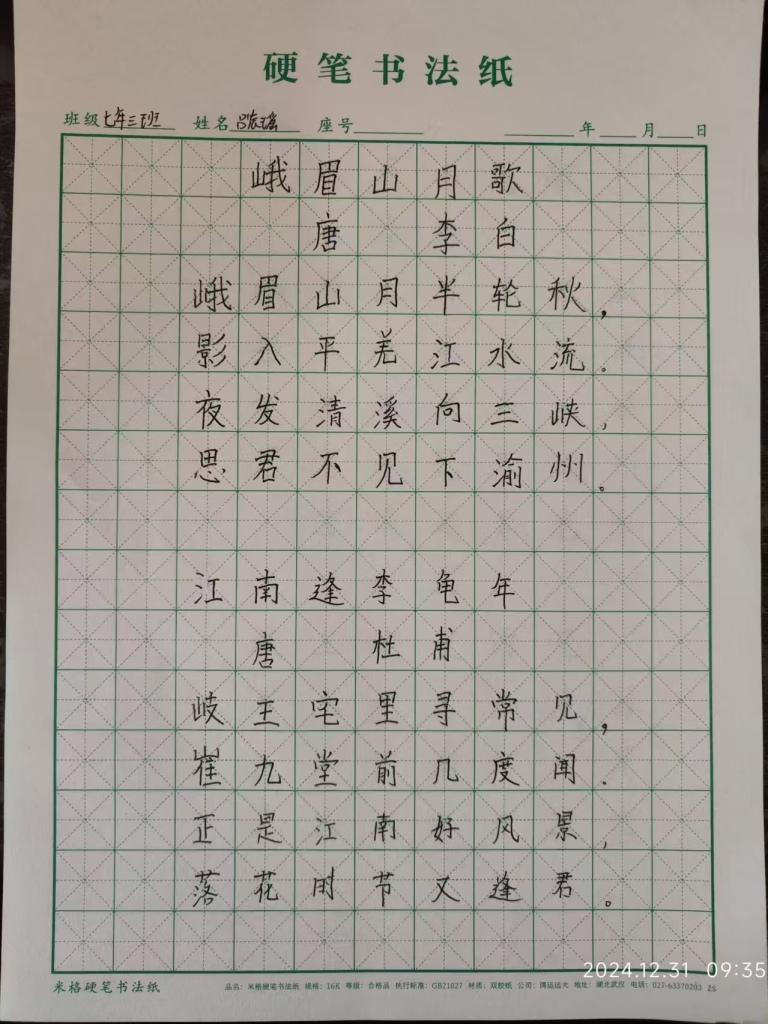 硬笔书法纸
班级 七年三班 姓名 吕宸瑶 座号 年 月 日
峨眉山月歌
唐 李白
峨眉山月半轮秋，
影入平羌江水流。
夜发清溪向三峡，
思君不见下渝州。
江南逢李龟年
唐 杜甫
岐王宅里寻常见，
崔九堂前几度闻.
正是江南好风景，
落花时节又逢君。
2024.12.31 09:35
米格硬笔书法纸 品名：米格硬笔书法纸 规格：16K 等级：合格品 执行标准：GB21027 材质：双胶纸 公司：鸿运远大 地址：湖北武汉 电话：027-63370203 ZS